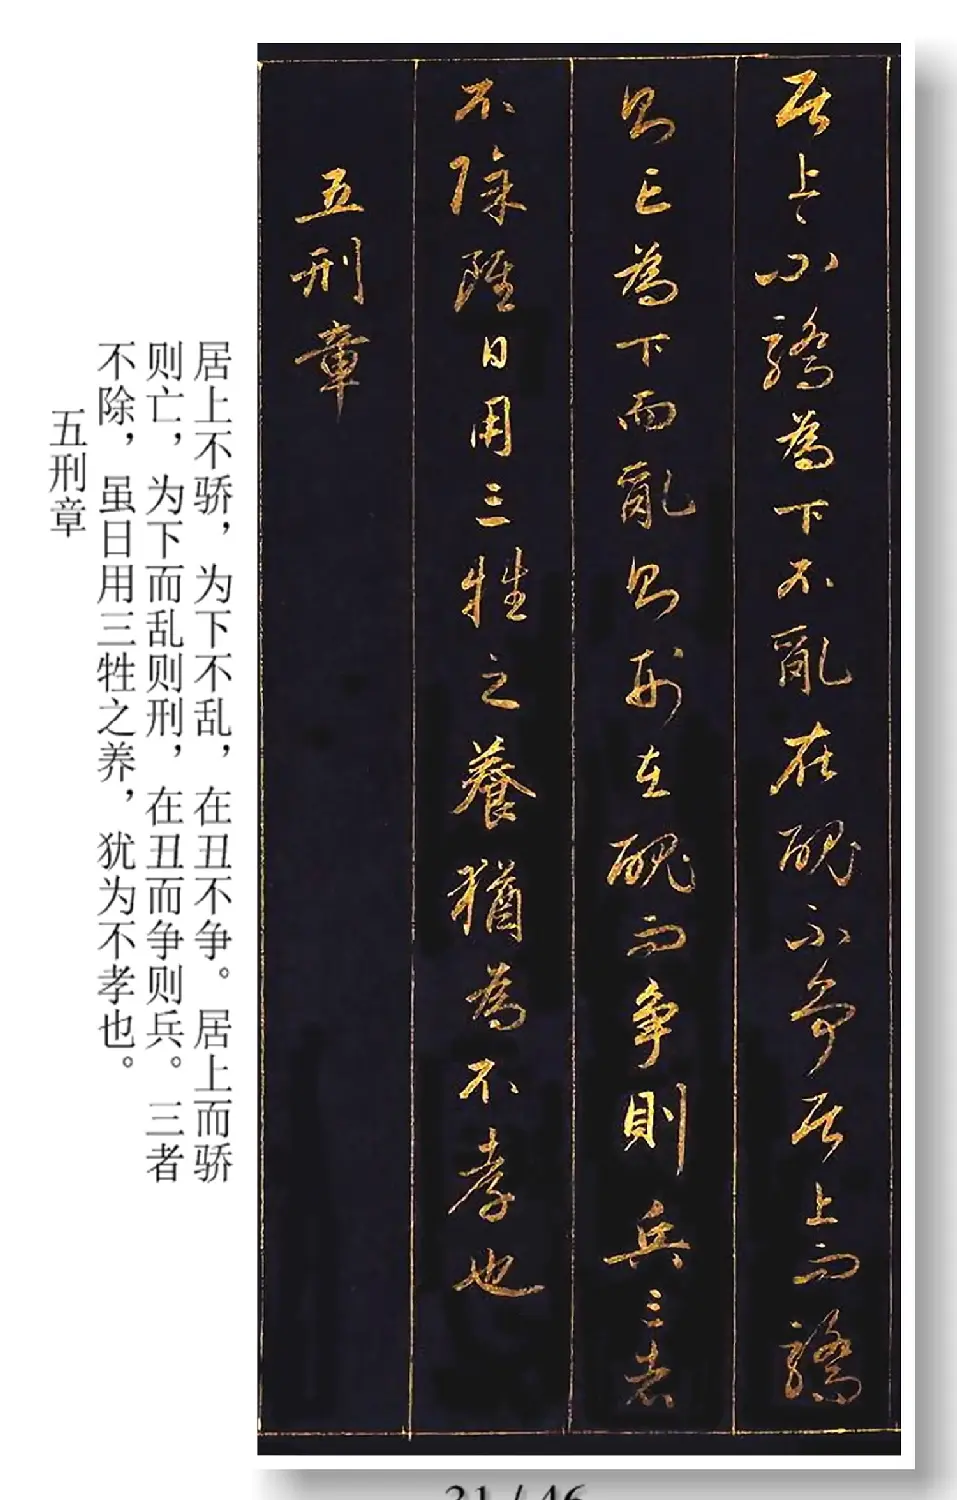 居上不驕為下不亂在醜不争居上而驕
則亡為下而亂則刑在醜而争則兵三者
不除雖日用三牲之養猶為不孝也
五刑章
居上不骄，为下不乱，在丑不争。居上而骄
则亡，为下而乱则刑，在丑而争则兵。三者
不除，虽日用三牲之养，犹为不孝也。
五刑章
31 / 46